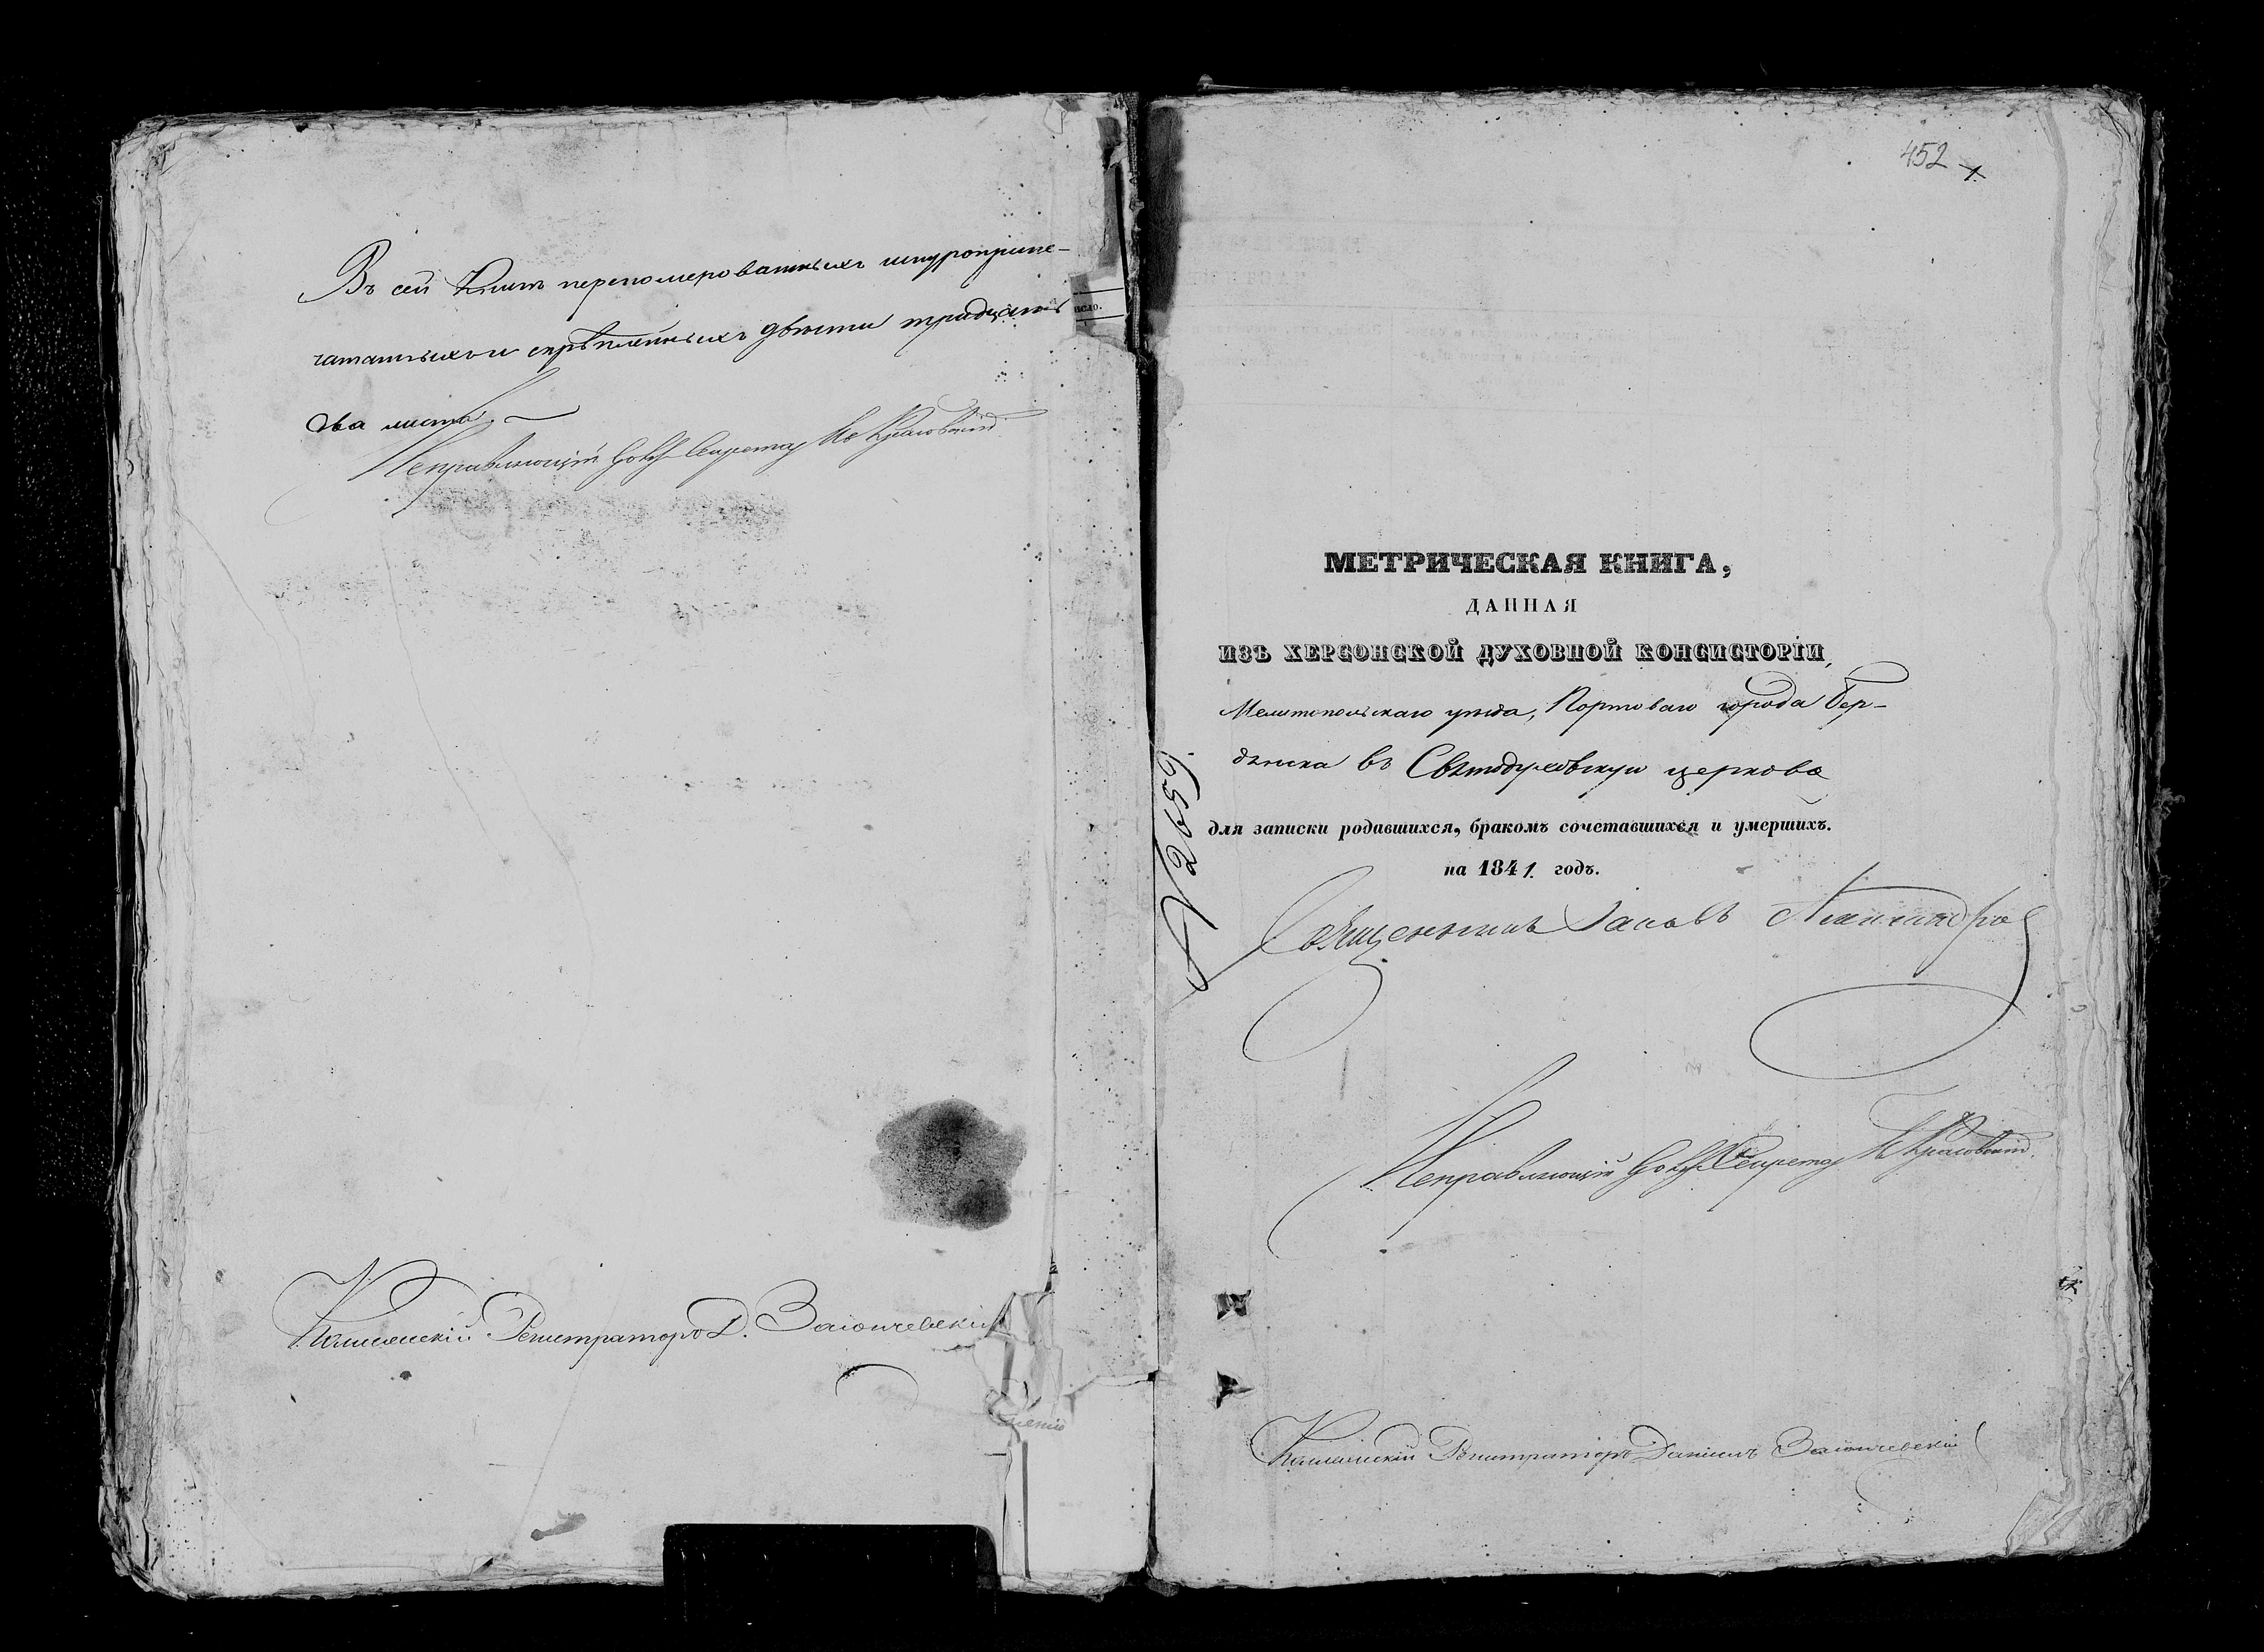 Въ сей Книгѣ перепомерованныхъ шнуроприпе-
чатанныхъ и скрѣпленныхъ двѣсти тридцать
два листа.
Исправляющій Секретаря Красовскій
Коллежскій Регистраторъ Д. Заіончевскій
452 1.
МЕТРИЧЕСКАЯ КНИГА,
ДАННАЯ
ИЗЪ ХЕРСОНСКОЙ ДУХОВНОЙ КОНСИСТОРІИ,
Мелитопольскаго уѣзда, Портоваго города Бер-
дянска въ Святодуховскую церковь
для записки родившихся, бракомъ сочетавшихся и умершихъ.
на 1841. годъ.
N 2659.
Священникъ Іаковъ
Исправляющій Секретаря Красовскій
Коллежскій Регистраторъ Даніилъ Заіончевскій